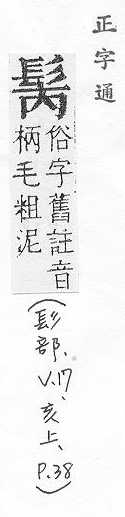 正字通
俗字舊註音
柄毛粗泥
(髟部、V.17、亥上、P.38)